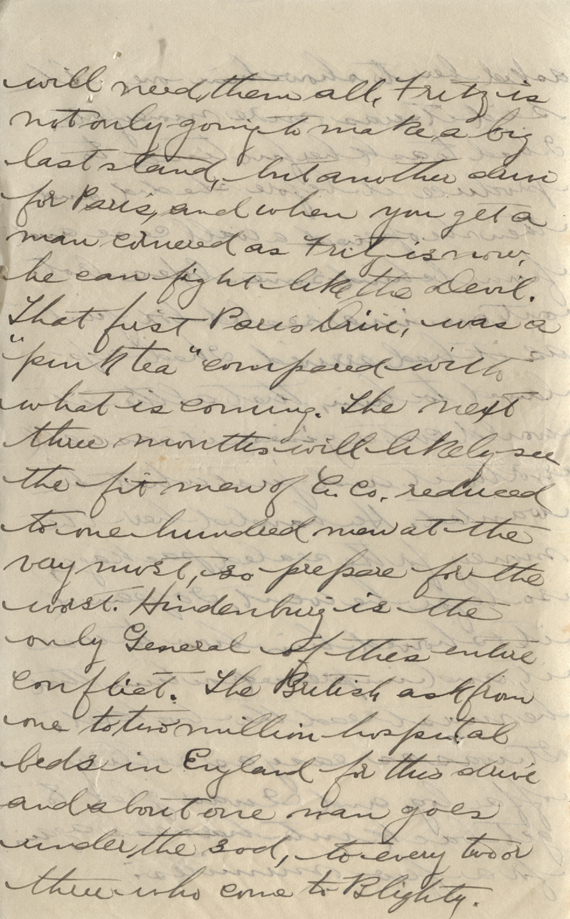 will need them all, Fritz is
not only going to make a big
last stand, but another drive
for Paris, and when you get a
man cornered as Fritz is now,
he can fight like the Devil.
That first Paris Drive, was a
"pink tea" compared with
what is coming. The next
three months will likely see
the fit men of Co. reduced
to one hundred men at the
very most, so prepare for the
worst. Hindenburg is the
only General of this entire
conflict. The British ask from
one to two million hospital
beds in England for this drive
and about one man goes
under the sod, to every two or
three who come to Blighty.